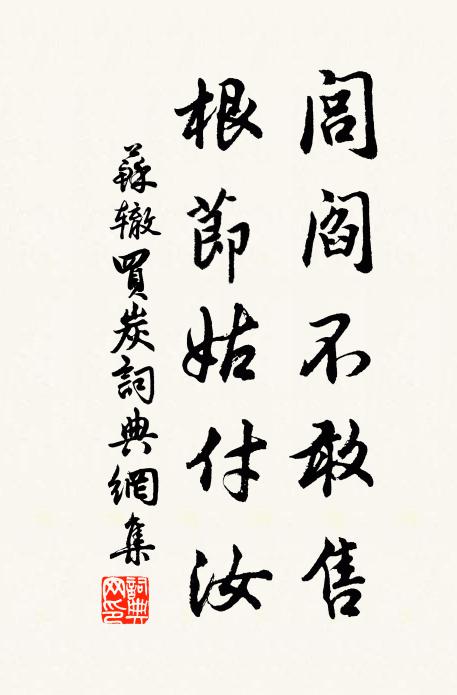 閭閻不敢售
根節姑付汝
蘇轍買炭詞典網集
詞典网印